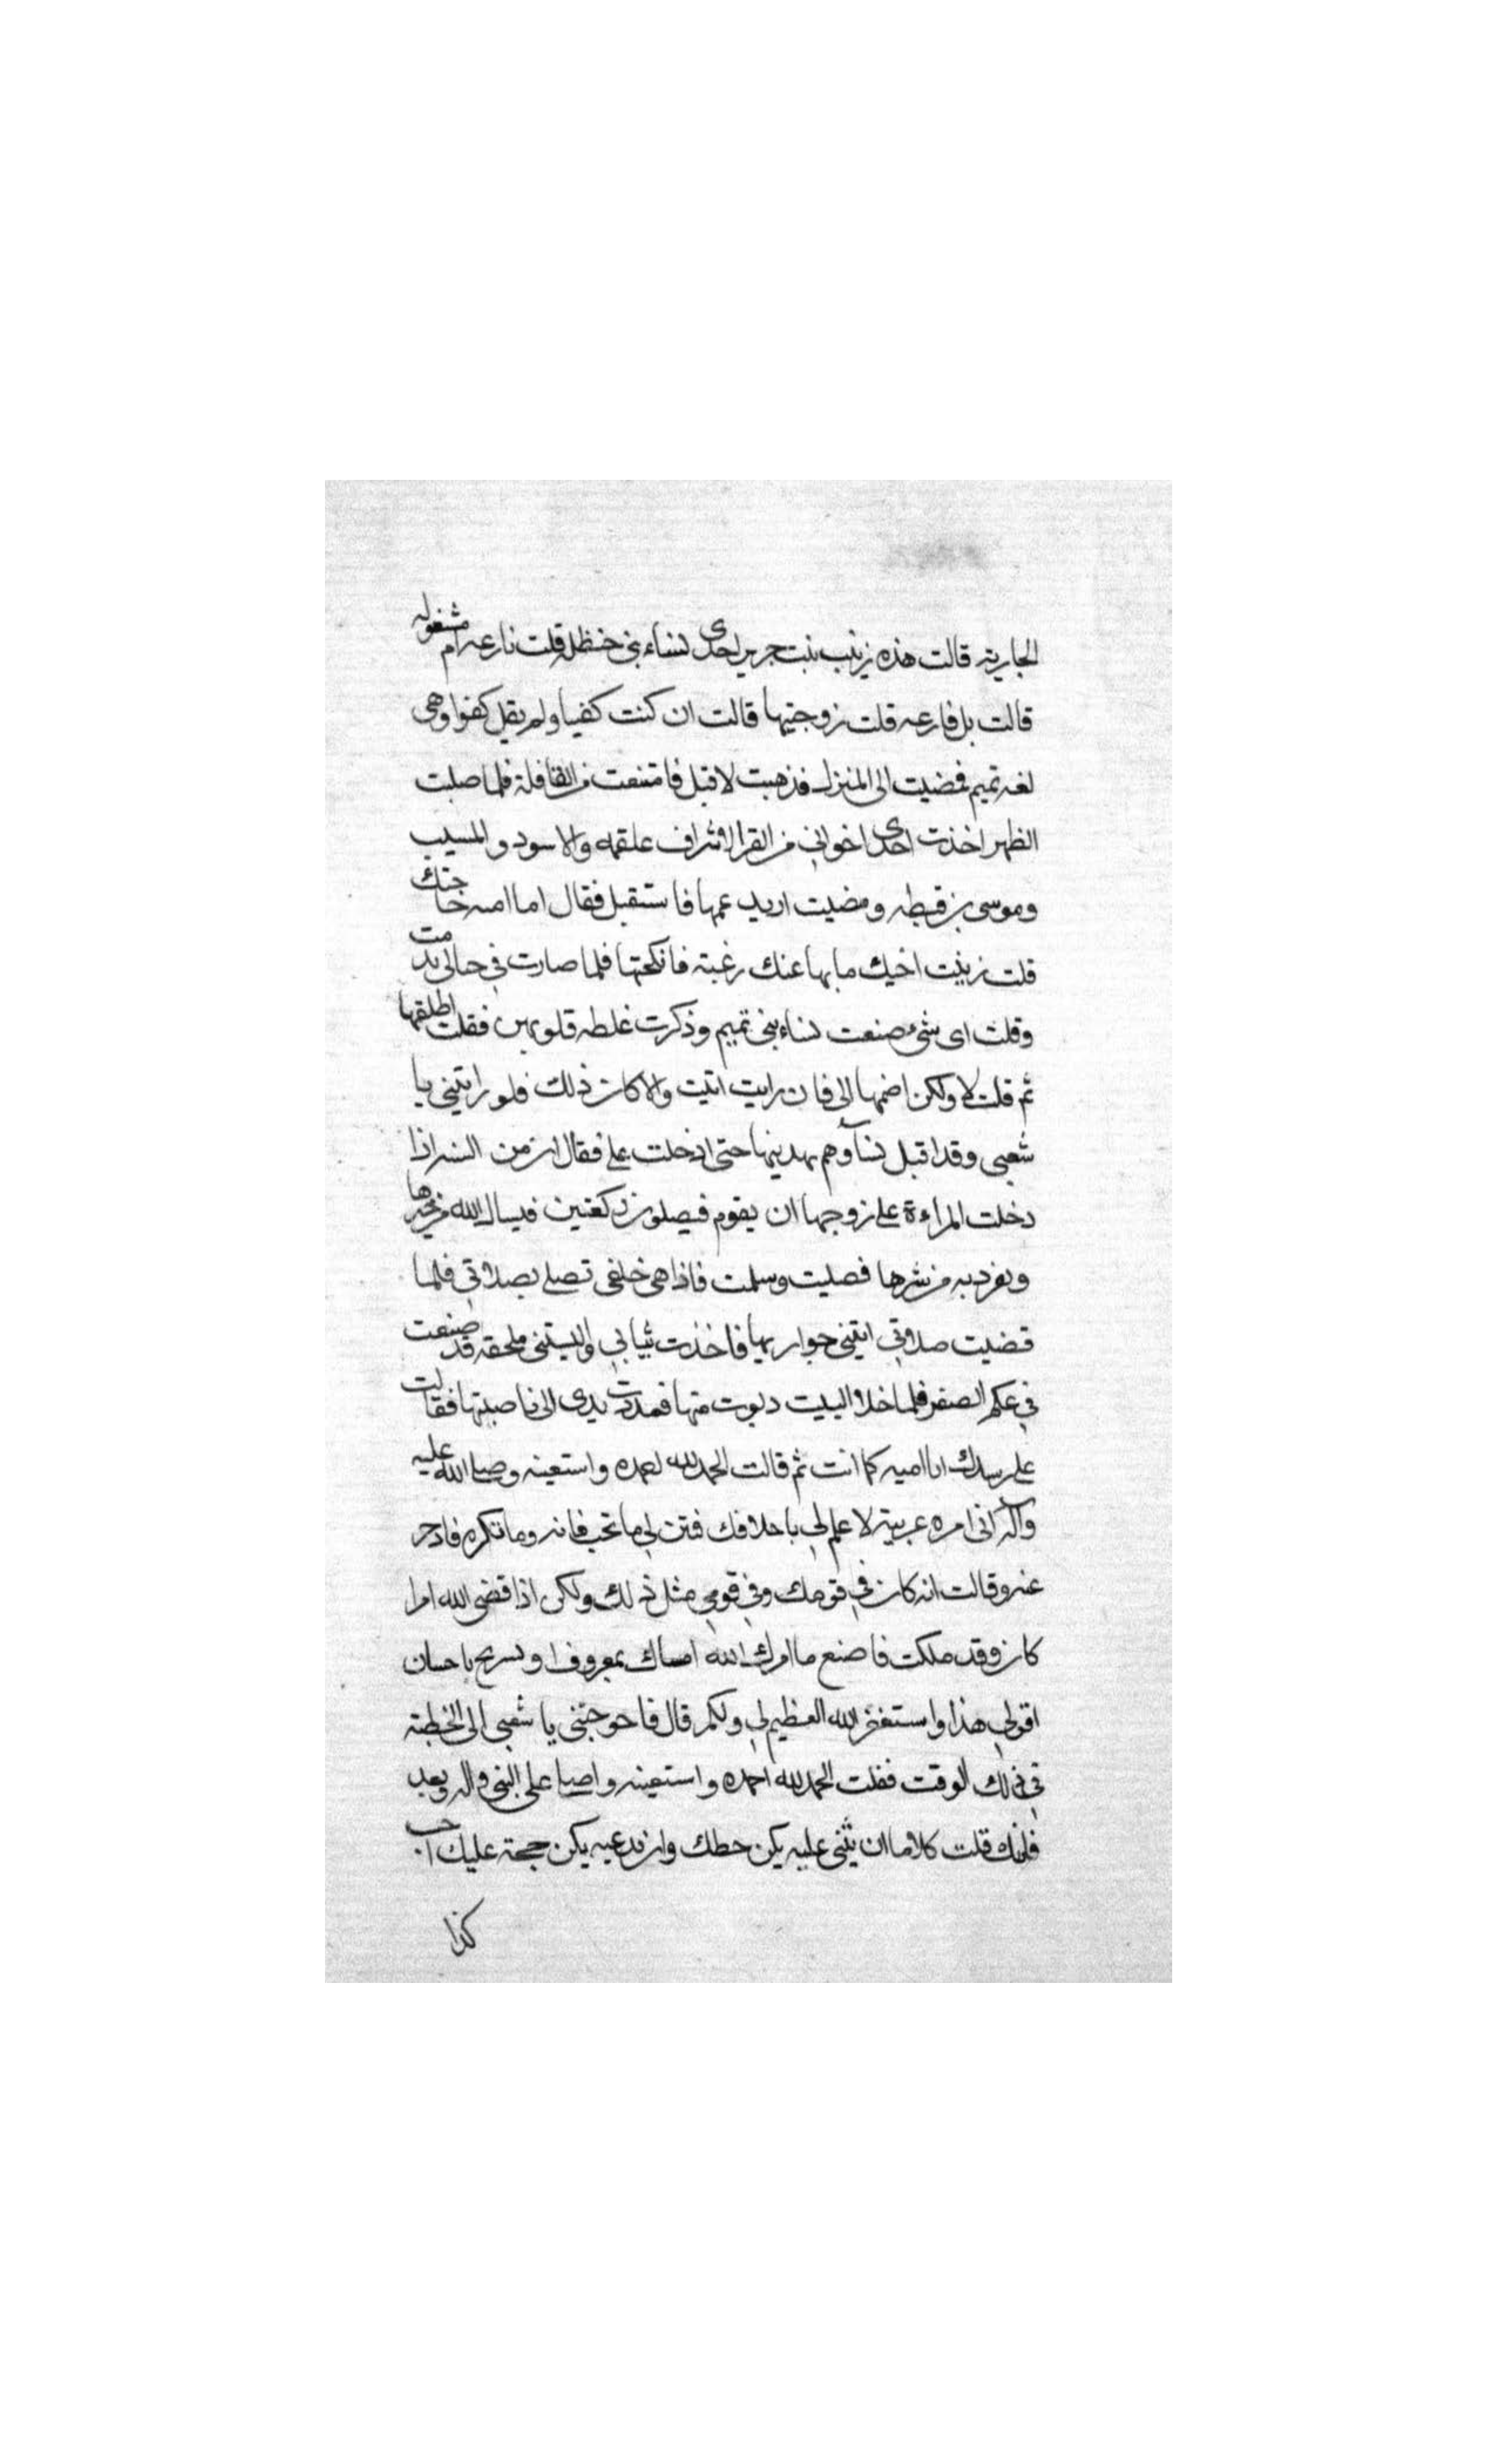 الجارية قالت هذه زينب بنت جرير احدى نساء بنى حنظله قلت نارعه ام مشغوله
قالت بل فارعه قلت زوجينيها قالت ان كنت كفيا ولم يقل كفوا وهى
لغه تميم فمضيت الى المنزل فذهبت لاقبل فامتنعت من القافلة فلما صليت
الظهر اخذت احدى اخوانى من القرا الاشراف علقمه والاسود والمسيب
وموسى بن قبطه ومضيت اريد عمها فاستقبل فقال اما امه حاجتك
قلت زينت اخيك ما بها عنك رغبته فانكحتها فلما صارت فى حالى ندمت
وقلت اى شىء صنعت نساء بنى تميم وذكرت غلطه قلوبهن فقلت اطلقها
ثم قلت لا ولكن اضمها الى فان رايت اتيت والا كان ذلك فلو رايتنى يا
شعبى وقد اقبل نساؤهم يهدينها حتى ادخلت على فقال ان من السنر اذا
دخلت المراءة على زوجها ان يقوم فيصلون ركعتين فيسال الله من خيرها
ويعوذ به من شرها فصليت وسلمت فاذا هى خلفى تصلى بصلاتى فلما
قضيت صلاتى اتينى جواريها فاخذت ثيابى والبستنى ملحقه قد صنعت
فى عكم الصفر فلما خلا البيت دنوت منها فمددت يدى الى ناصيتها فقالت
على رسلك ابا اميه كما انت ثم قالت الحمد لله احمده واستعينه وصلى الله عليه
وآله انى امره عربية لا علم لى باخلاقك فتن لى ما تحب فاته وما تكره فادجر
عنه وقالت انه كان فى قومك وفى قومى مثل ذلك ولكن اذا قضى الله امرا
كان وقد ملكت فاصنع ما امرك الله امساك بمعروف او تسريح باحسان
اقول هذا واستغفر الله العظيم لى ولكم قال فاحوجتنى يا شعبى الى الخطبة
فى ذلك الوقت فقلت الحمد لله احمده واستعينه واصلى على النبى واله وبعد
فانك قلت كلاما ان يثنى عليه يكن حطك وان تدعيه يكن حجة عليك احب
كذا